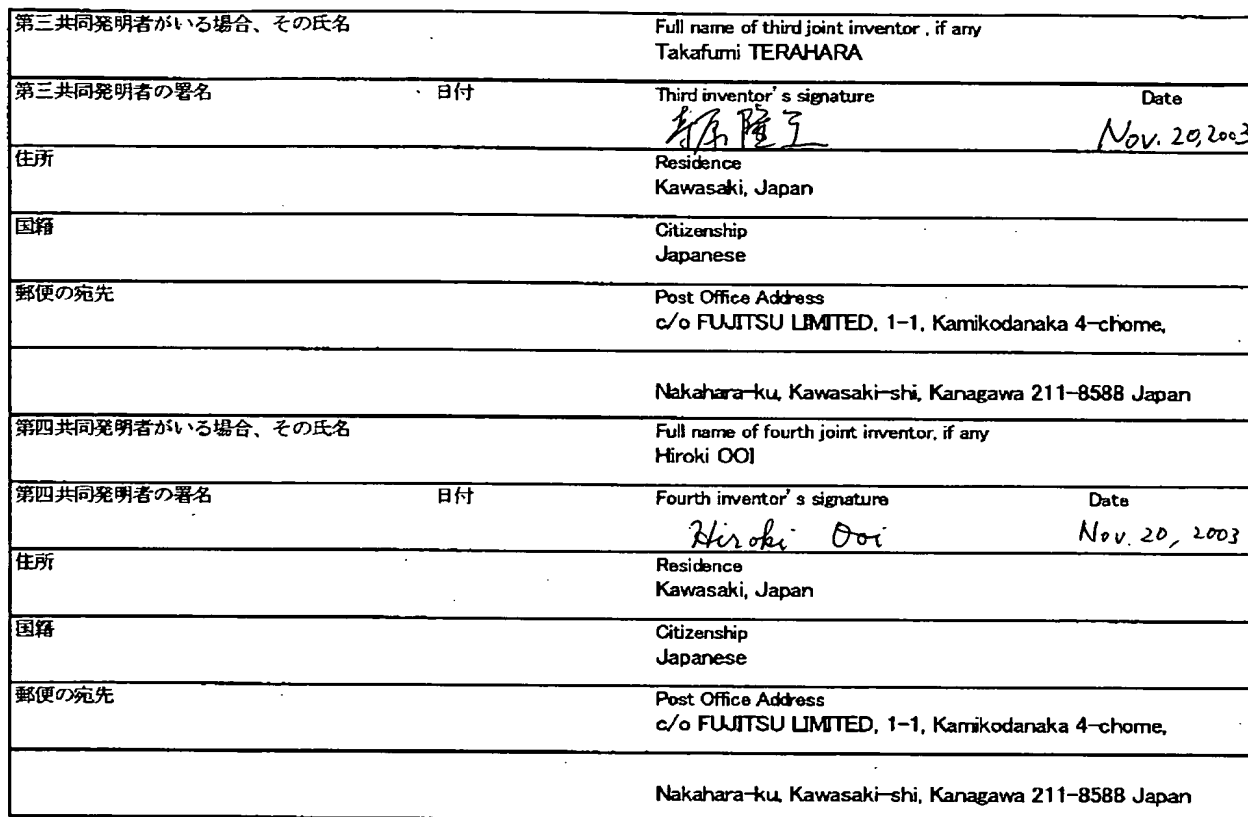 第三共同発明者がいる場合、その氏名 Full name of third joint inventor , if any
Takafumi TERAHARA
第三共同発明者の署名 日付 Third inventor's signature Date
寺原隆文 Nov. 20, 2003
住所 Residence
Kawasaki, Japan
国籍 Citizenship
Japanese
郵便の宛先 Post Office Address
c/o FUJITSU LIMITED, 1-1, Kamikodanaka 4-chome,
Nakahara-ku, Kawasaki-shi, Kanagawa 211-8588 Japan
第四共同発明者がいる場合、その氏名 Full name of fourth joint inventor, if any
Hiroki OOI
第四共同発明者の署名 日付 Fourth inventor's signature Date
Hiroki Ooi Nov. 20, 2003
住所 Residence
Kawasaki, Japan
国籍 Citizenship
Japanese
郵便の宛先 Post Office Address
c/o FUJITSU LIMITED, 1-1, Kamikodanaka 4-chome,
Nakahara-ku, Kawasaki-shi, Kanagawa 211-8588 Japan